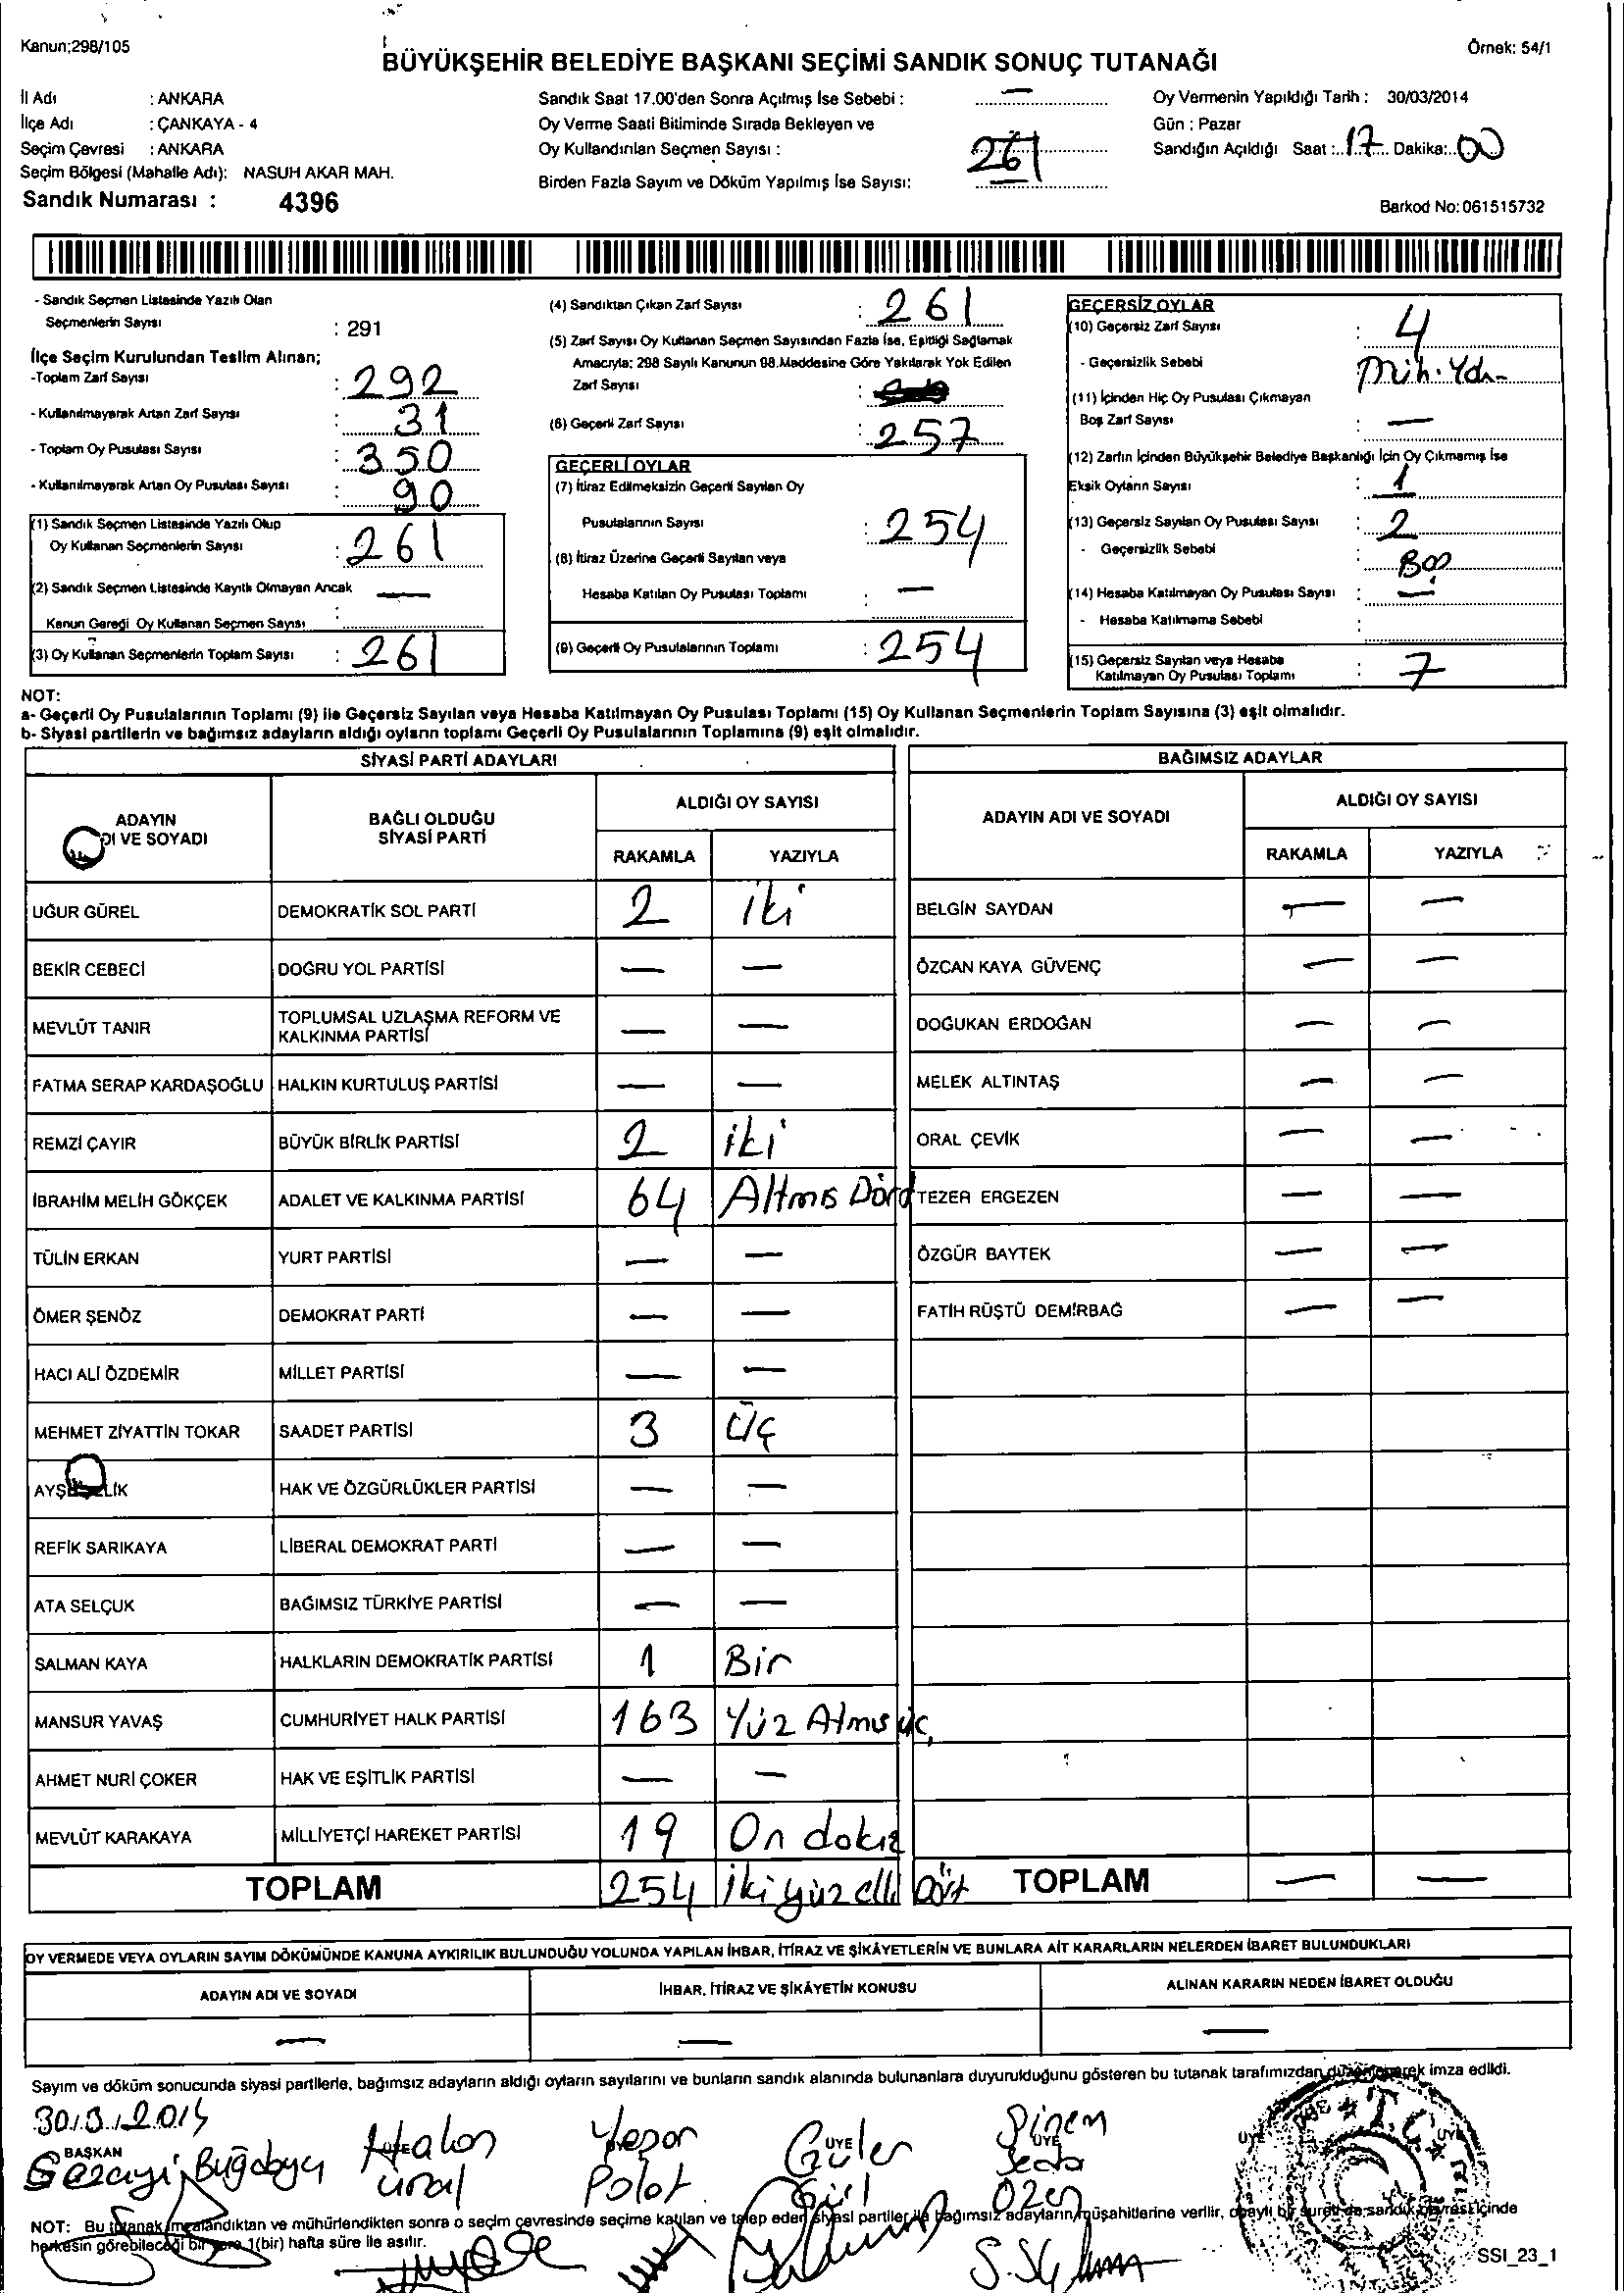 Kanun;298/105
Örnek: 54/1
BÜYÜKŞEHİR BELEDİYE BAŞKANI SEÇİMİ SANDIK SONUÇ TUTANAĞI
İl Adı : ANKARA
İlçe Adı : ÇANKAYA - 4
Seçim Çevresi : ANKARA
Seçim Bölgesi (Mahalle Adı): NASUH AKAR MAH.
Sandık Numarası : 4396
Sandık Saat 17.00'den Sonra Açılmış İse Sebebi : —
Oy Verme Saati Bitiminde Sırada Bekleyen ve
Oy Kullandırılan Seçmen Sayısı : 261
Birden Fazla Sayım ve Döküm Yapılmış İse Sayısı: —
Oy Vermenin Yapıldığı Tarih : 30/03/2014
Gün : Pazar
Sandığın Açıldığı Saat :..17.. Dakika:..00
Barkod No: 061515732
- Sandık Seçmen Listesinde Yazılı Olan
Seçmenlerin Sayısı : 291
İlçe Seçim Kurulundan Teslim Alınan;
-Toplam Zarf Sayısı : 292
- Kullanılmayarak Artan Zarf Sayısı : 31
- Toplam Oy Pusulası Sayısı : 350
- Kullanılmayarak Artan Oy Pusulası Sayısı : 90
(1) Sandık Seçmen Listesinde Yazılı Olup
Oy Kullanan Seçmenlerin Sayısı : 261
(2) Sandık Seçmen Listesinde Kayıtlı Olmayan Ancak
Kanun Gereği Oy Kullanan Seçmen Sayısı : —
(3) Oy Kullanan Seçmenlerin Toplam Sayısı : 261
(4) Sandıktan Çıkan Zarf Sayısı : 261
(5) Zarf Sayısı Oy Kullanan Seçmen Sayısından Fazla İse, Eşitliği Sağlamak
Amacıyla; 298 Sayılı Kanunun 98.Maddesine Göre Yakılarak Yok Edilen
Zarf Sayısı :
(6) Geçerli Zarf Sayısı : 257
GEÇERLİ OYLAR
(7) İtiraz Edilmeksizin Geçerli Sayılan Oy
Pusulalarının Sayısı : 254
(8) İtiraz Üzerine Geçerli Sayılan veya
Hesaba Katılan Oy Pusulası Toplamı : —
(9) Geçerli Oy Pusulalarının Toplamı : 254
GEÇERSİZ OYLAR
(10) Geçersiz Zarf Sayısı : 4
- Geçersizlik Sebebi
(11) İçinden Hiç Oy Pusulası Çıkmayan
Boş Zarf Sayısı : —
(12) Zarfın İçinden Büyükşehir Belediye Başkanlığı İçin Oy Çıkmamış İse
Eksik Oyların Sayısı : 1
(13) Geçersiz Sayılan Oy Pusulası Sayısı : 2
- Geçersizlik Sebebi Boş
(14) Hesaba Katılmayan Oy Pusulası Sayısı : —
- Hesaba Katılmama Sebebi :
(15) Geçersiz Sayılan veya Hesaba
Katılmayan Oy Pusulası Toplamı : 7
NOT:
a- Geçerli Oy Pusulalarının Toplamı (9) ile Geçersiz Sayılan veya Hesaba Katılmayan Oy Pusulası Toplamı (15) Oy Kullanan Seçmenlerin Toplam Sayısına (3) eşit olmalıdır.
b- Siyasi partilerin ve bağımsız adayların aldığı oyların toplamı Geçerli Oy Pusulalarının Toplamına (9) eşit olmalıdır.
SİYASİ PARTİ ADAYLARI
BAĞIMSIZ ADAYLAR
ADAYIN
DI VE SOYADI
BAĞLI OLDUĞU
SİYASİ PARTİ
ALDIĞI OY SAYISI
RAKAMLA YAZIYLA
ADAYIN ADI VE SOYADI
ALDIĞI OY SAYISI
RAKAMLA YAZIYLA
UĞUR GÜREL DEMOKRATİK SOL PARTİ 2 iki BELGİN SAYDAN — —
BEKİR CEBECİ DOĞRU YOL PARTİSİ — — ÖZCAN KAYA GÜVENÇ — —
MEVLÜT TANIR TOPLUMSAL UZLAŞMA REFORM VE
KALKINMA PARTİSİ — — DOĞUKAN ERDOĞAN — —
FATMA SERAP KARDAŞOĞLU HALKIN KURTULUŞ PARTİSİ — — MELEK ALTINTAŞ — —
REMZİ ÇAYIR BÜYÜK BİRLİK PARTİSİ 2 iki ORAL ÇEVİK — —
İBRAHİM MELİH GÖKÇEK ADALET VE KALKINMA PARTİSİ 64 Altmıs Dörd TEZER ERGEZEN — —
TÜLİN ERKAN YURT PARTİSİ — — ÖZGÜR BAYTEK — —
ÖMER ŞENÖZ DEMOKRAT PARTİ — — FATİH RÜŞTÜ DEMİRBAĞ — —
HACI ALİ ÖZDEMİR MİLLET PARTİSİ — —
MEHMET ZİYATTİN TOKAR SAADET PARTİSİ 3 Üç
HAK VE ÖZGÜRLÜKLER PARTİSİ — —
REFİK SARIKAYA LİBERAL DEMOKRAT PARTİ — —
ATA SELÇUK BAĞIMSIZ TÜRKİYE PARTİSİ — —
SALMAN KAYA HALKLARIN DEMOKRATİK PARTİSİ 1 Bir
MANSUR YAVAŞ CUMHURİYET HALK PARTİSİ 163 Yüz Atmıs üç
AHMET NURİ ÇOKER HAK VE EŞİTLİK PARTİSİ — —
MEVLÜT KARAKAYA MİLLİYETÇİ HAREKET PARTİSİ 19 On dokuz
TOPLAM 254 İkiyüz elli Dört TOPLAM — —
OY VERMEDE VEYA OYLARIN SAYIM DÖKÜMÜNDE KANUNA AYKIRILIK BULUNDUĞU YOLUNDA YAPILAN İHBAR, İTİRAZ VE ŞİKÂYETLERİN VE BUNLARA AİT KARARLARIN NELERDEN İBARET BULUNDUKLARI
ADAYIN ADI VE SOYADI İHBAR, İTİRAZ VE ŞİKÂYETİN KONUSU ALINAN KARARIN NEDEN İBARET OLDUĞU
— — —
Sayım ve döküm sonucunda siyasi partilerle, bağımsız adayların aldığı oyların sayılarını ve bunların sandık alanında bulunanlara duyurulduğunu gösteren bu tutanak tarafımızdan düzenlenerek imza edildi.
30.3.2014
BAŞKAN ÜYE ÜYE ÜYE ÜYE ÜYE
Hakan Yaşar Güler Sinem
Ünal Polat Gül Seda
Özen
NOT: Bu tutanak imzalandıktan ve mühürlendikten sonra o seçim çevresinde seçime katılan ve talep eden siyasi partiler ile bağımsız adayların müşahitlerine verilir, onaylı bir sureti de sandık çevresi içinde
herkesin görebileceği bir yere 1(bir) hafta süre ile asılır.
SSI_23_1